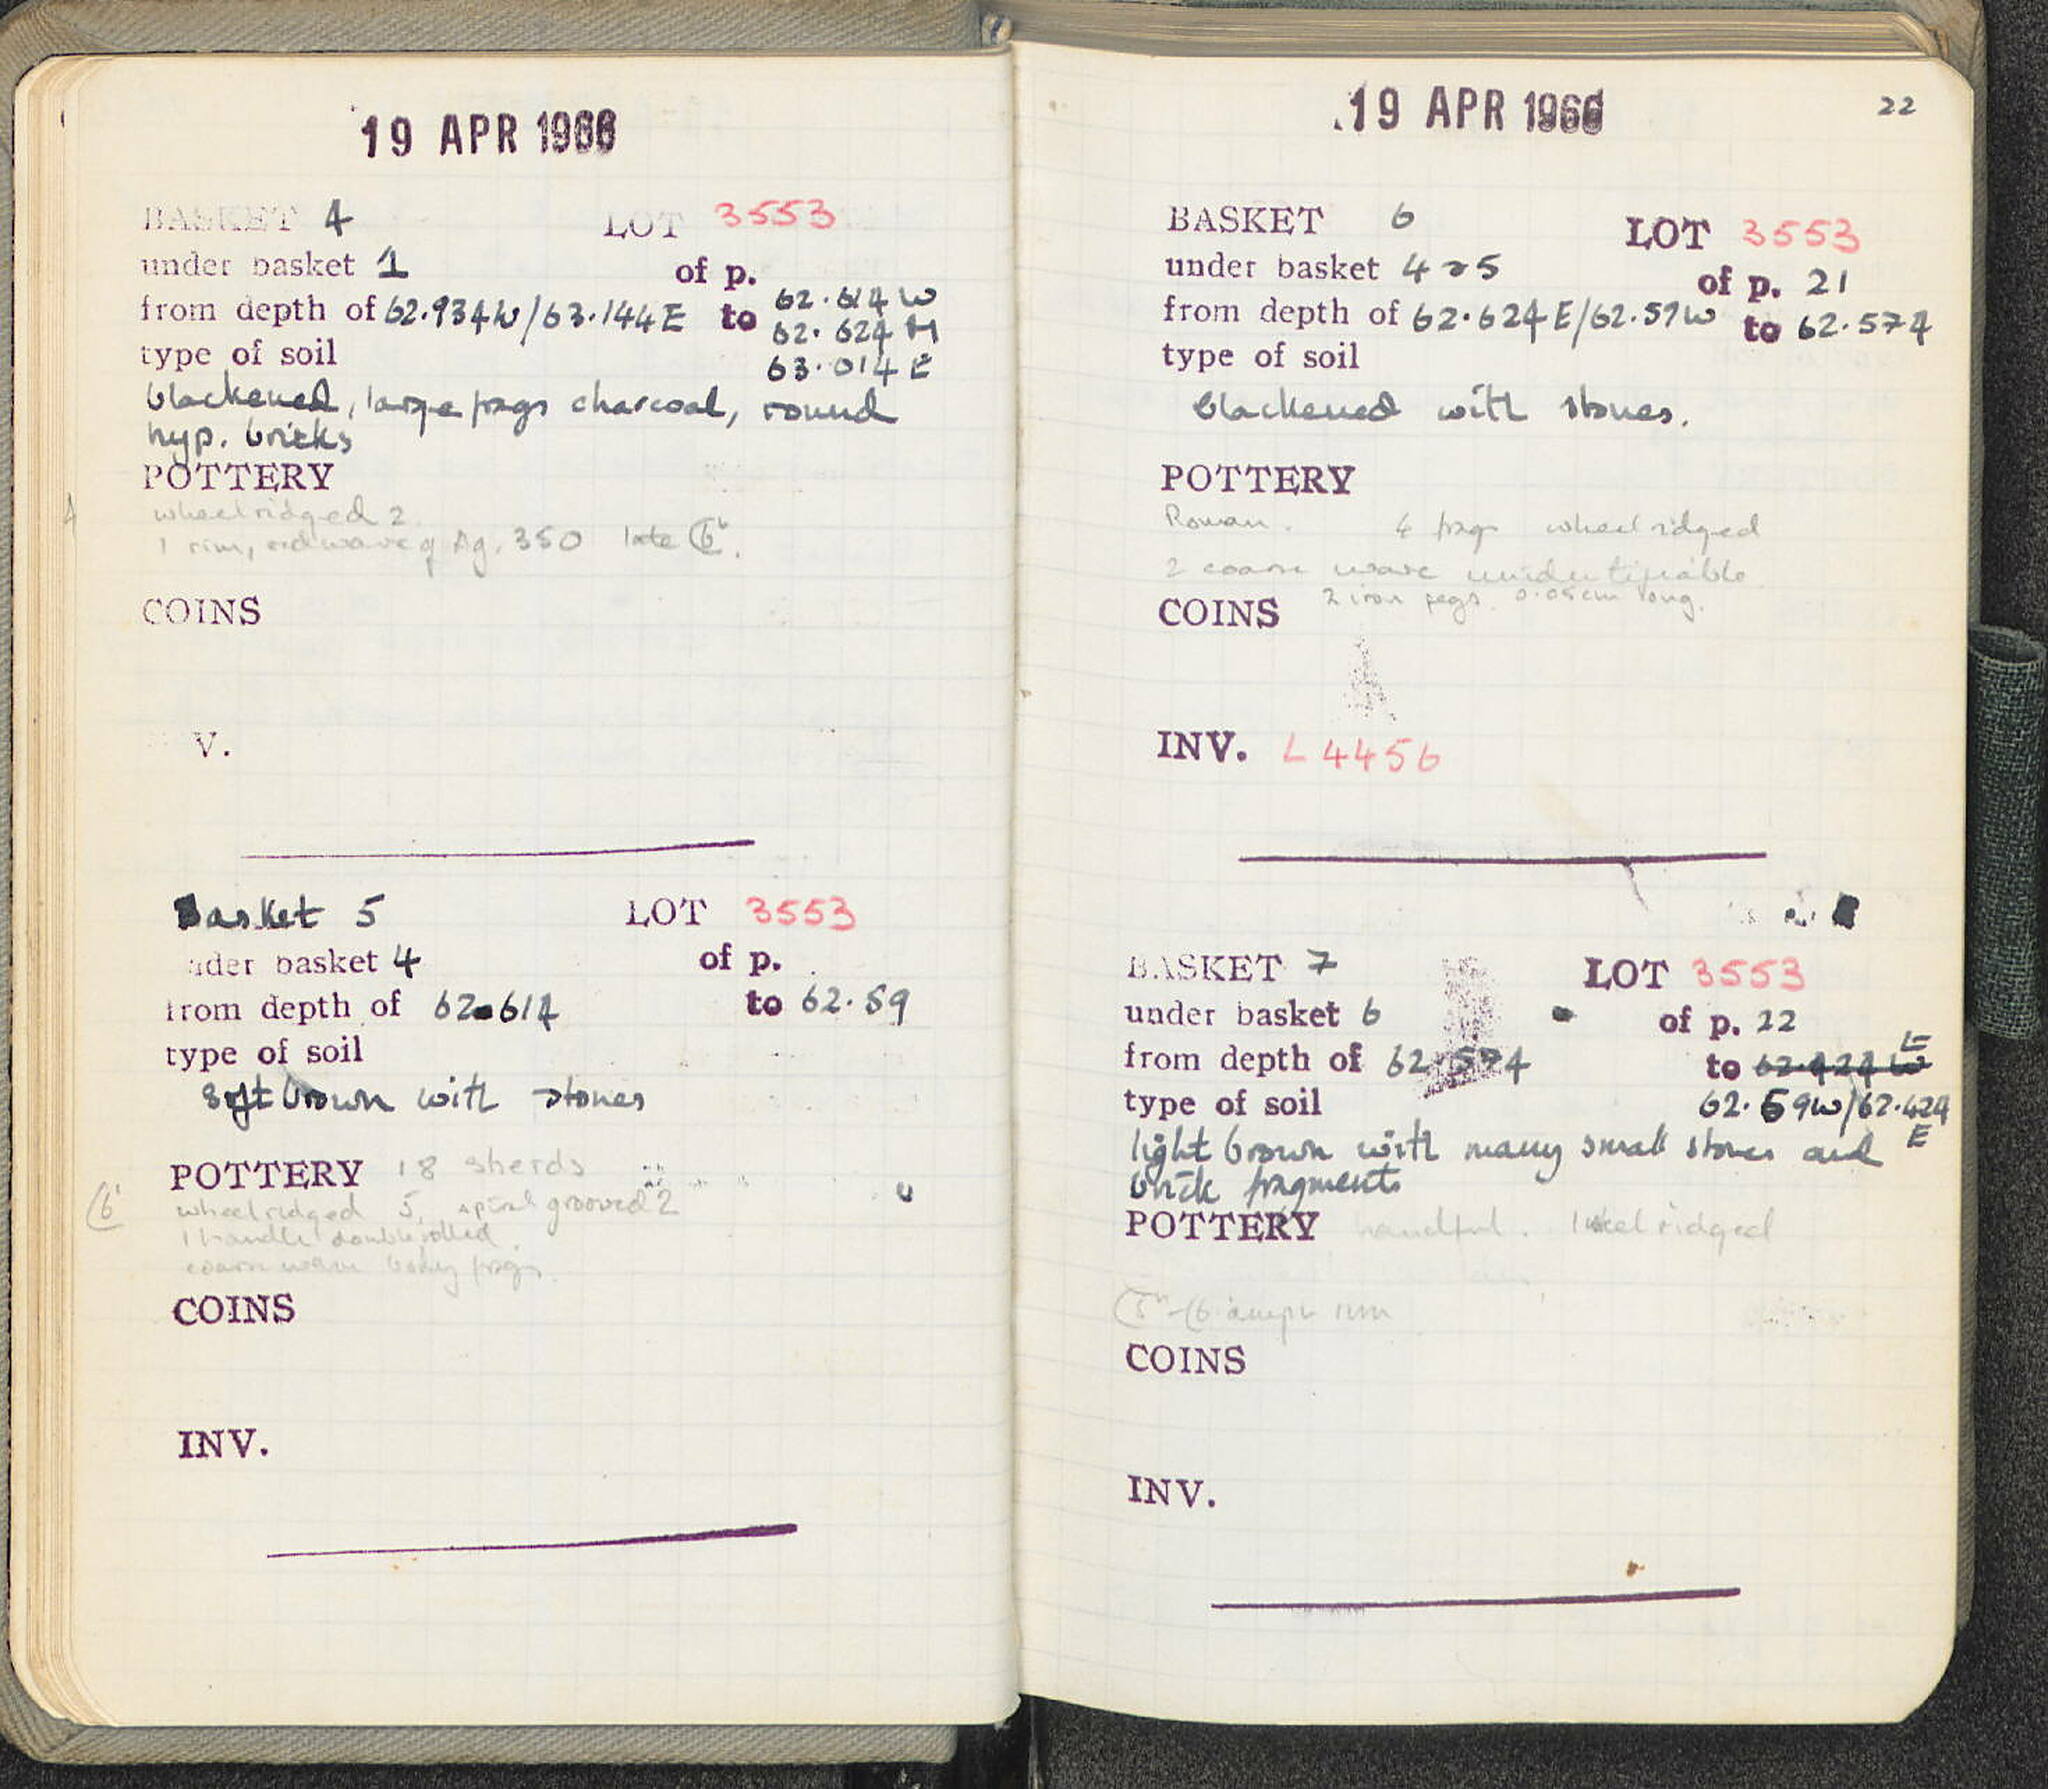 19 APR 1966
BASKET 4 LOT 3553
under basket 1 of p.
from depth of 62.934W/63.144E to 62.614W
62.624M
63.014E
type of soil
blackened, large frags charcoal, round
hyp. bricks
POTTERY
wheelridged 2
1 rim, redware of Ag. 350 late C6th.
COINS
V.
Basket 5 LOT 3553
nder basket 4 of p.
from depth of 62.614 to 62.59
type of soil
soft brown with stones
POTTERY 18 sherds
wheelridged 5, spiral grooved 2
1 handle double rolled
coarse ware body frags.
COINS
INV.
19 APR 1966
22
BASKET 6 LOT 3553
under basket 4 & 5 of p. 21
from depth of 62.624E/62.59W to 62.574
type of soil
blackened with stones.
POTTERY
Roman. 4 frags wheelridged
2 coarse ware unidentifiable
2 iron pegs. 0.05cm long.
COINS
INV. L 4456
BASKET 7 LOT 3553
under basket 6 of p. 22
from depth of 62.574 to 62.424 W E
type of soil 62.59W/62.424
E
light brown with many small stones and
brick fragments
POTTERY handful. 1 wheelridged
C5th-C6 amph rim
COINS
INV.